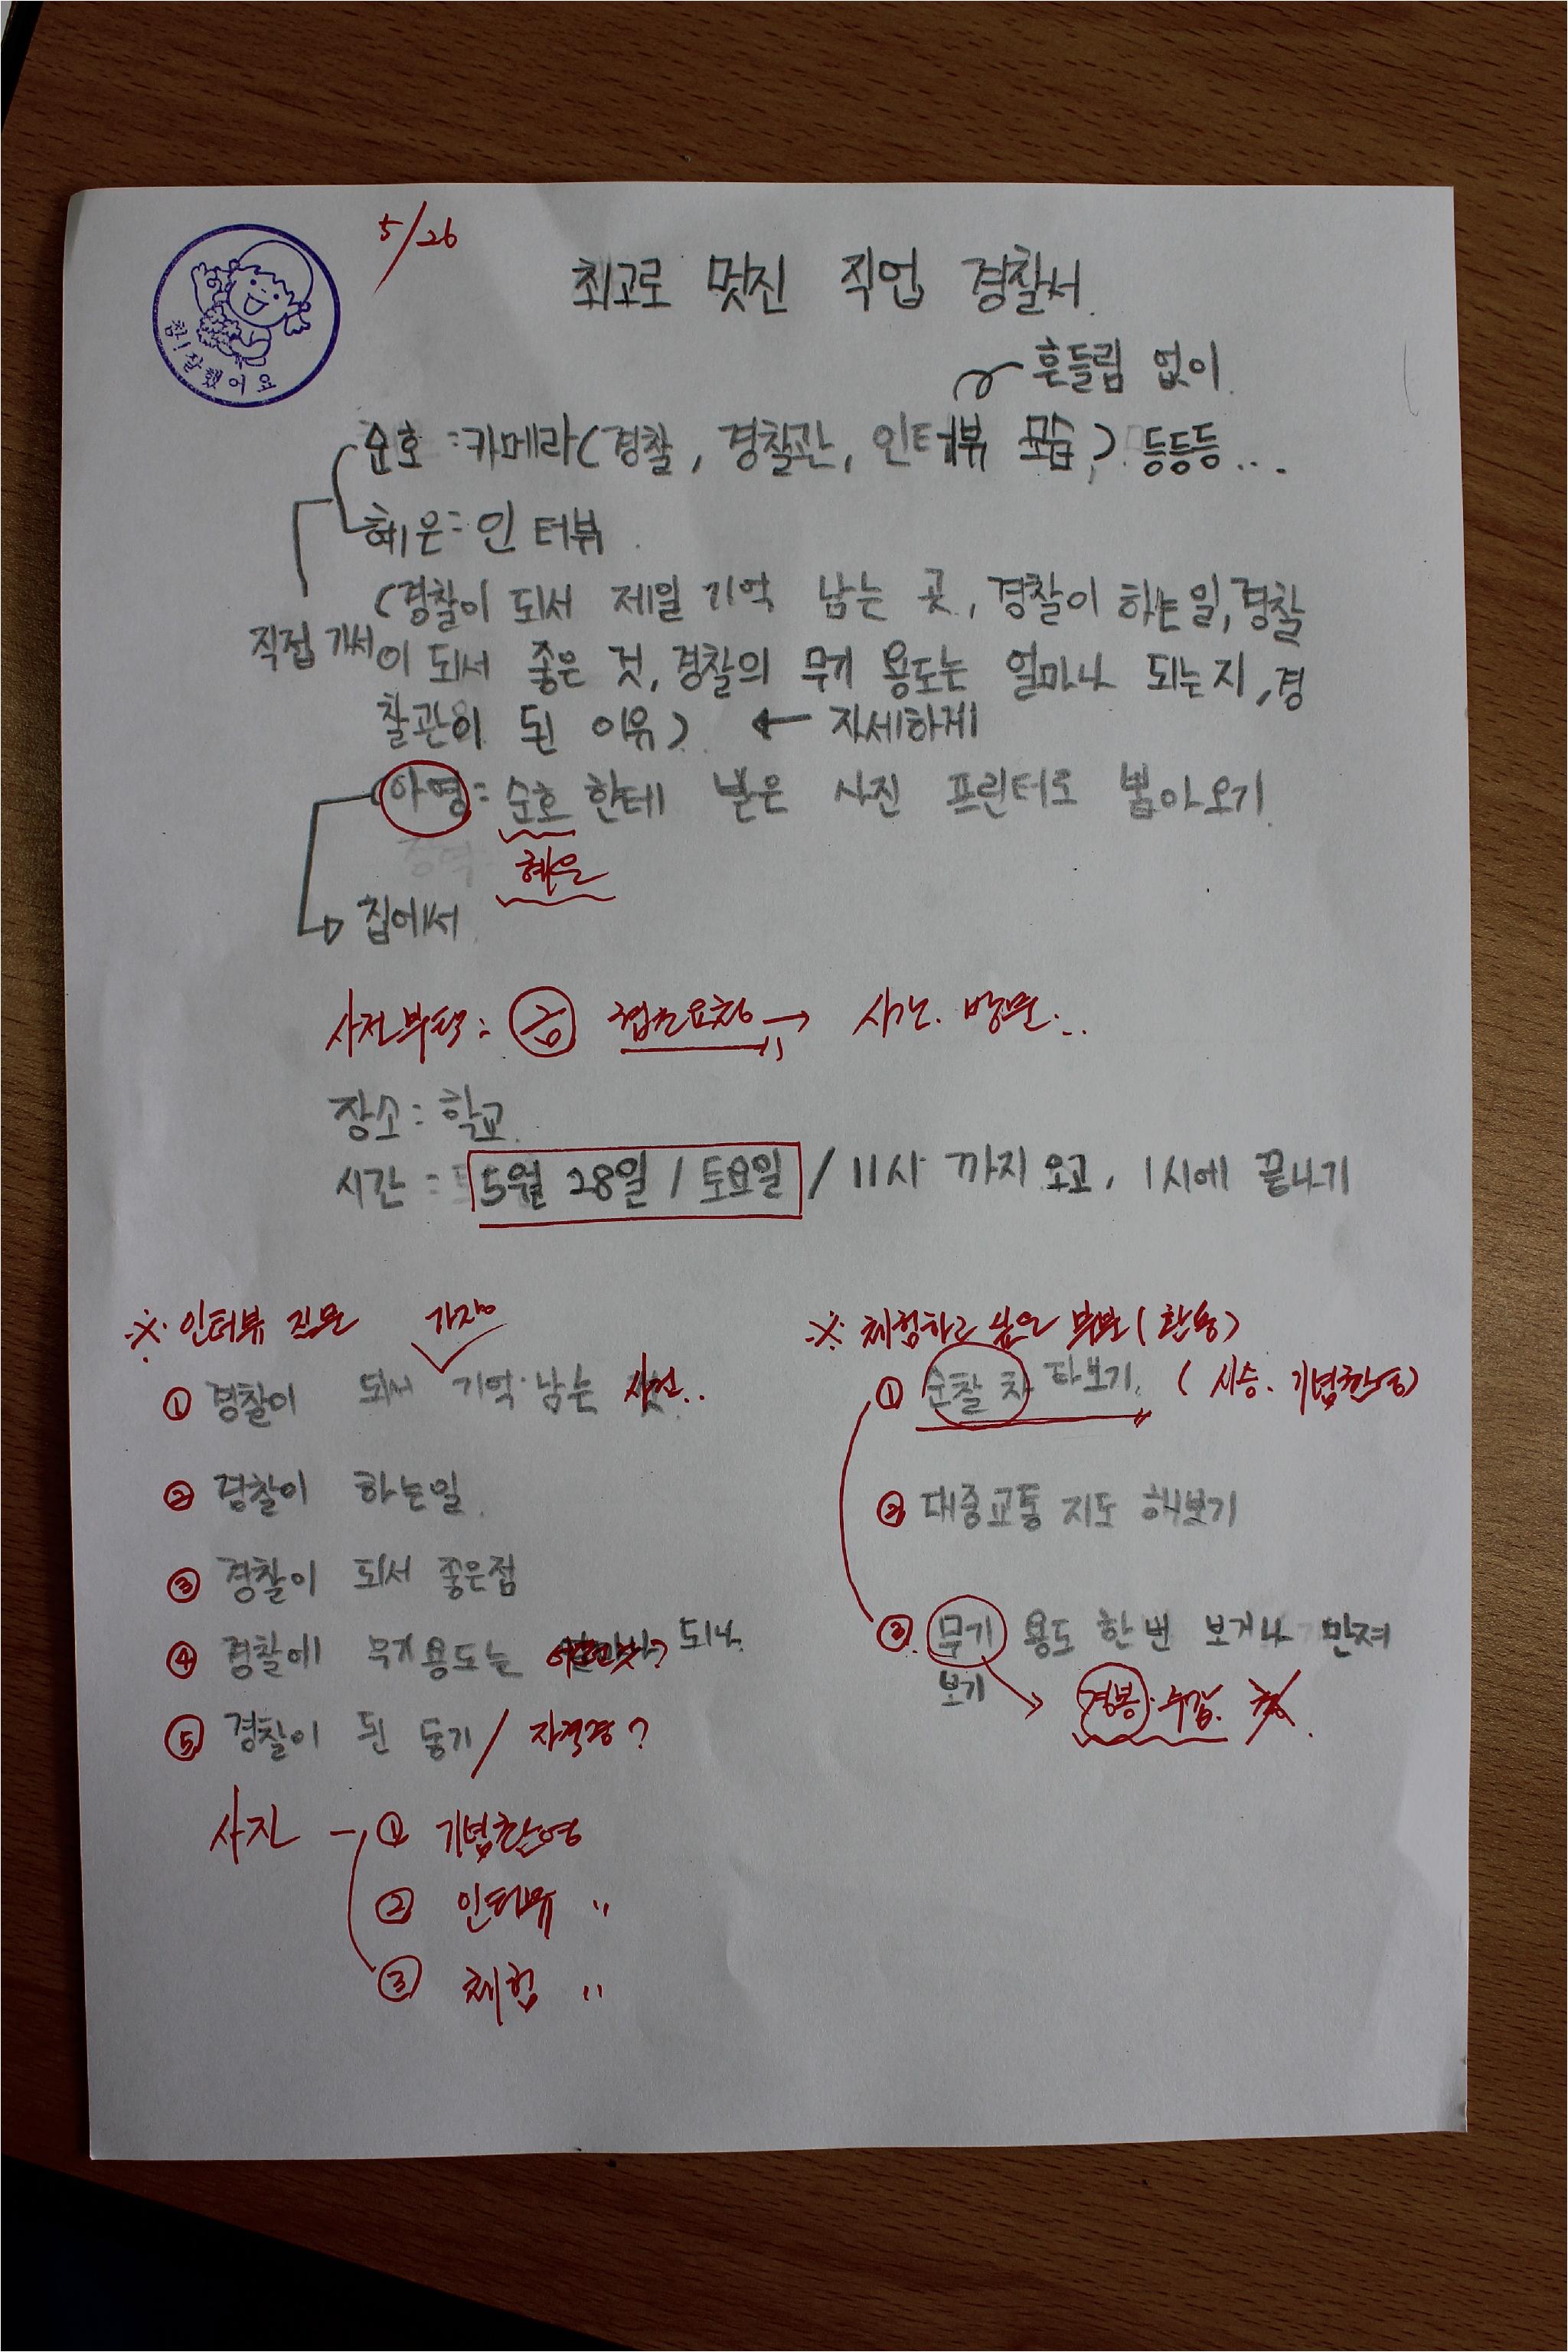 5/26
참! 잘했어요
최고로 멋진 직업 경찰서.
흔들림 없이.
순호 : 카메라(경찰, 경찰관, 인터뷰 모습) 등등등...
혜은 : 인터뷰.
(경찰이 되서 제일 기억 남는 곳, 경찰이 하는일, 경찰
직접 가서
이 되서 좋은 것, 경찰의 무기 용도는 얼마나 되는지, 경
찰관이 된 이유). ← 자세하게
아영 : 순호 한테 받은 사진 프린터로 뽑아오기.
혜은
집에서.
사전부탁 : 협조요청 → 시간. 방문...
장소 : 학교.
시간 : 5월 28일 / 토요일 / 11시 까지 오고, 1시에 끝나기
※ 인터뷰 질문
가장
① 경찰이 되서 기억 남는 사건..
② 경찰이 하는일.
③ 경찰이 되서 좋은점
④ 경찰에 무기용도는 되나.
⑤ 경찰이 된 동기 / 자격증?
사진 - ① 기념촬영
② 인터뷰 〃
③ 체험 〃
※ 체험하고 싶은 부분 (활동)
① 순찰 차 타보기. (시승. 기념촬영)
② 대중교통 지도 해보기
③ 무기 용도 한번 보거나 만져
보기
경봉. 수갑.